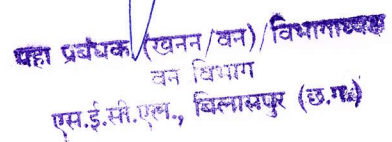 महा प्रबंधक (खनन/वन)/विभागाध्यक्ष
वन विभाग
एस.ई.सी.एल., बिलासपुर (छ.ग.)